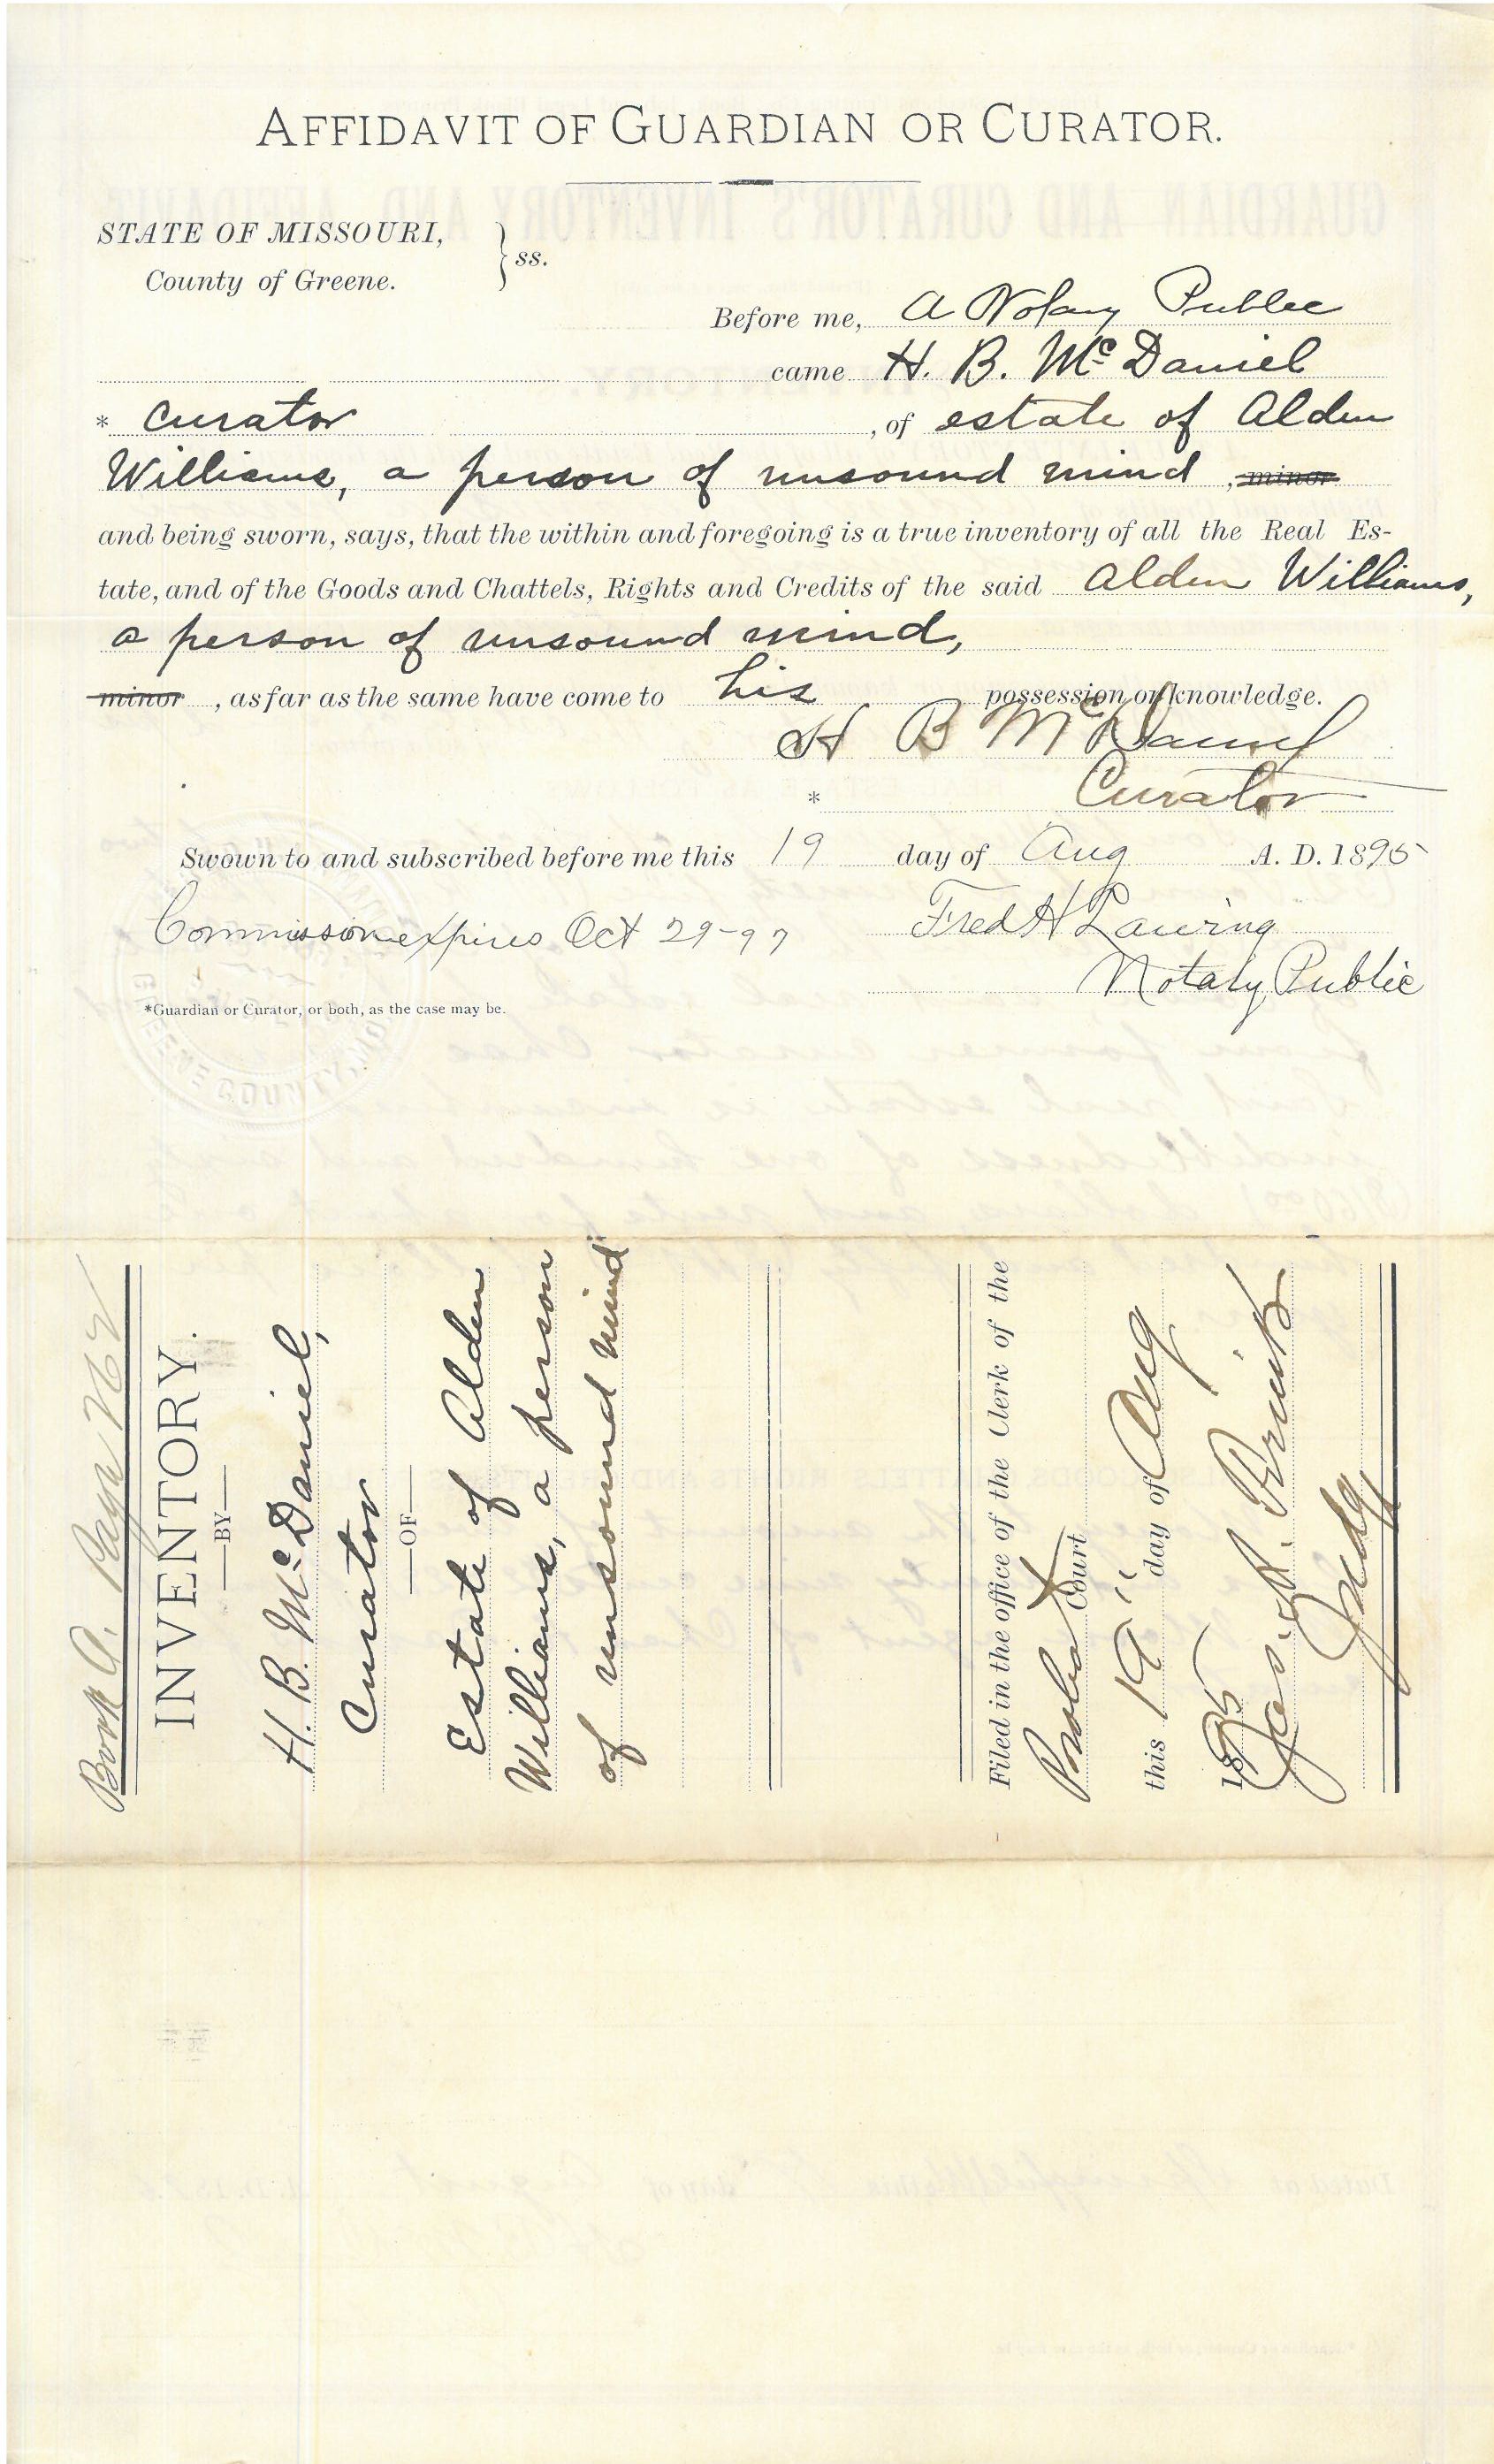 AFFIDAVIT OF GUARDIAN OR CURATOR.
STATE OF MISSOURI,
County of Greene. } ss.
Before me, a Notary Public
came H. B. McDaniel
* curator , of estate of Alden
Williams, a person of unsound mind , minor
and being sworn, says, that the within and foregoing is a true inventory of all the Real Es-
tate, and of the Goods and Chattels, Rights and Credits of the said Alden Williams,
a person of unsound mind,
minor , as far as the same have come to his possession or knowledge.
H B McDaniel
* Curator
Swown to and subscribed before me this 19 day of Aug A. D. 1895
Commission expires Oct 29-97 Fred H Lawing
Notary Public
*Guardian or Curator, or both, as the case may be.
GREENE COUNTY, MO
Book A. Page
INVENTORY.
—BY—
H. B. McDaniel,
Curator
—OF—
Estate of Alden
Williams, a person
of unsound mind
Filed in the office of the Clerk of the
Probate Court
this 19" day of Aug
1895
Jas. R.
Judge